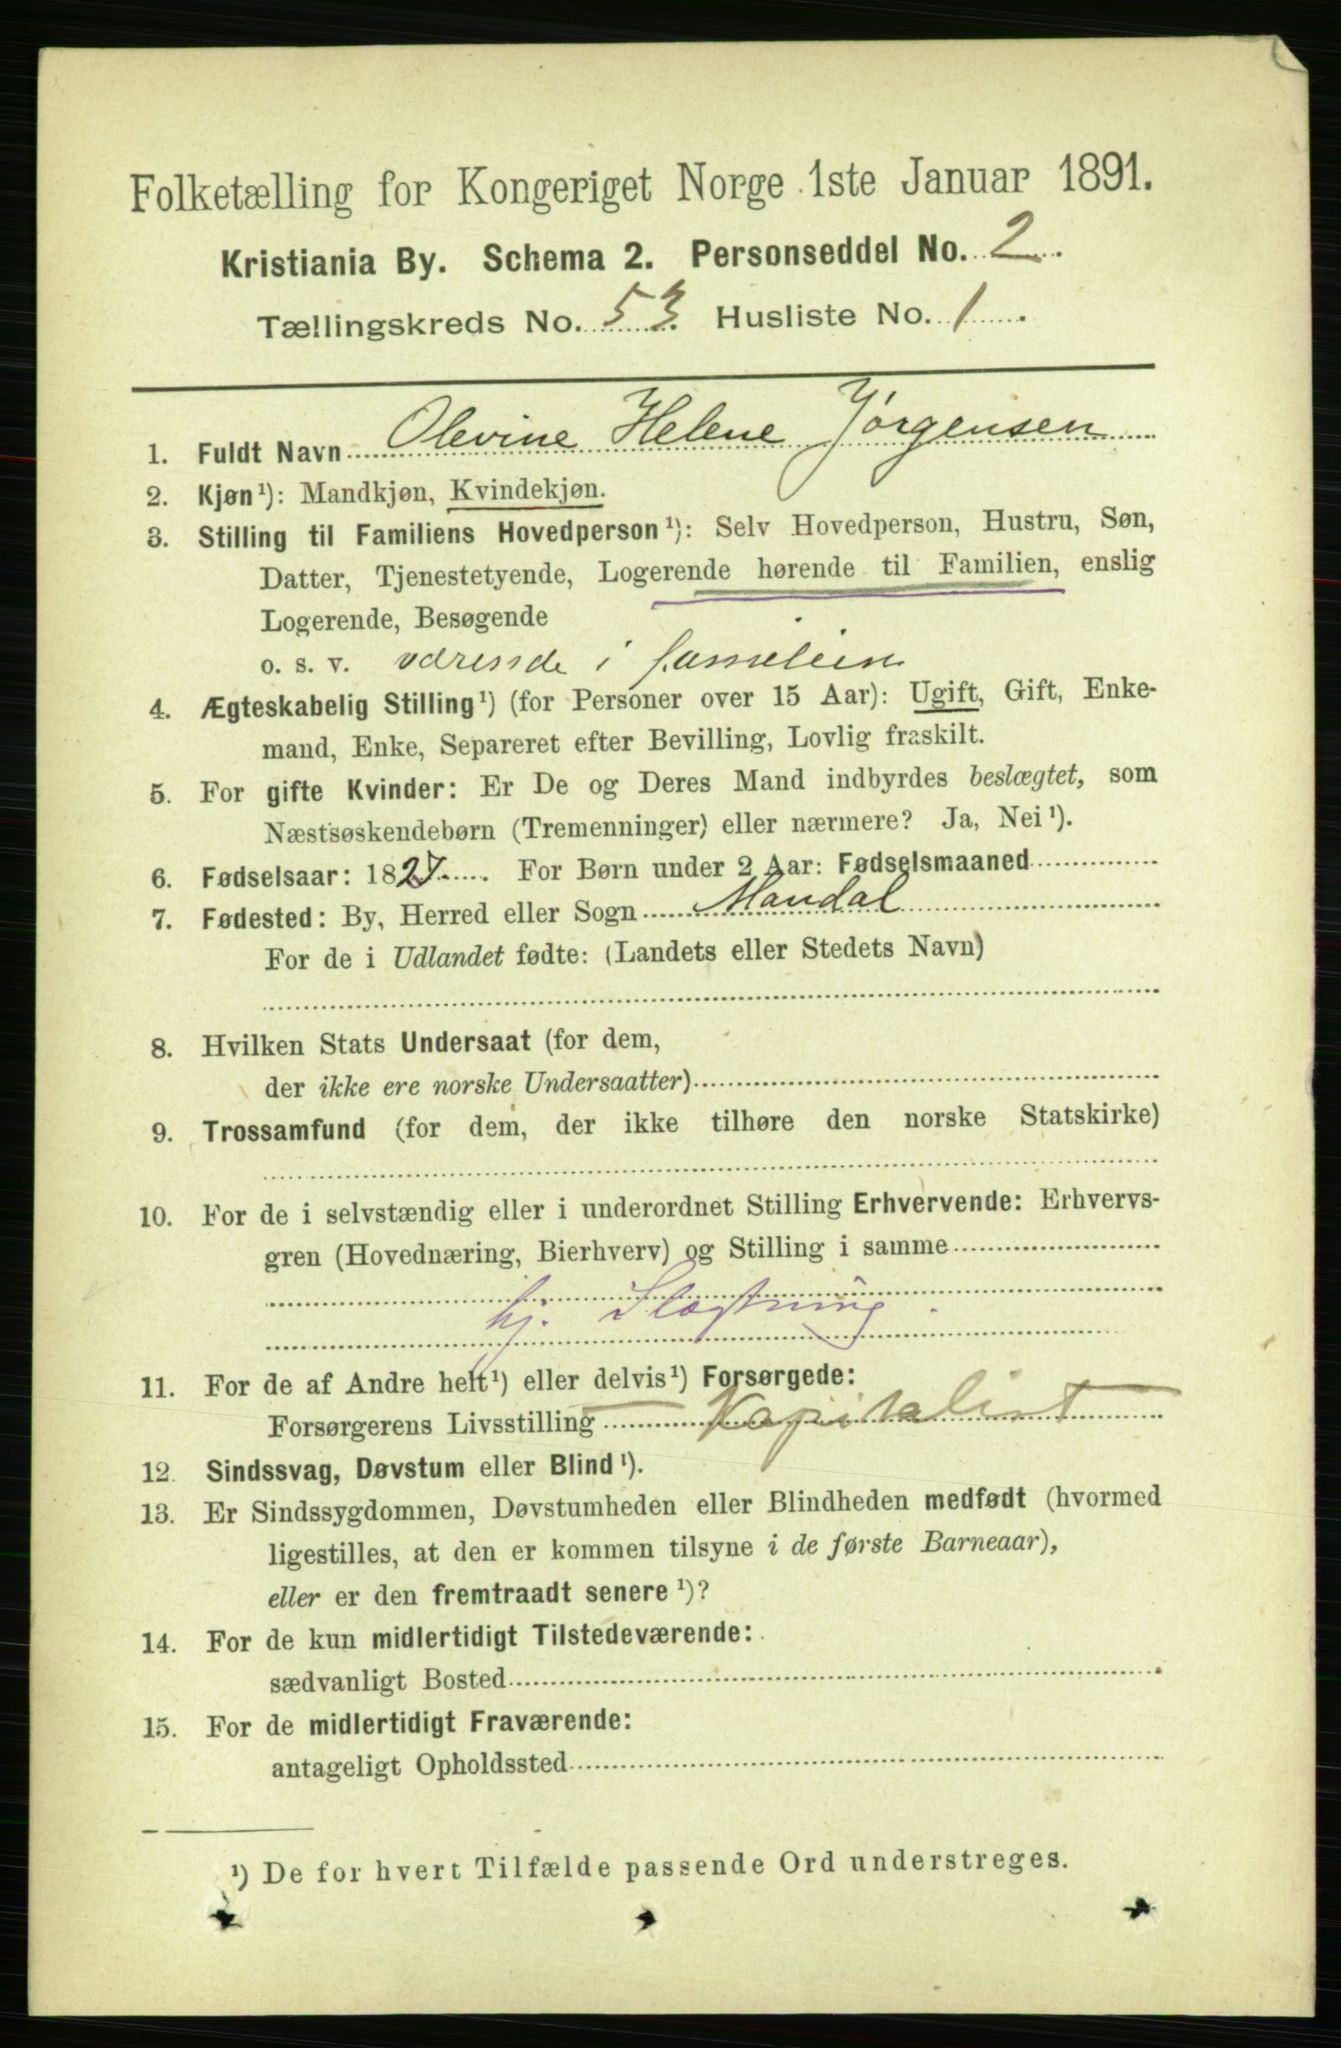 Folketælling for Kongeriget Norge 1ste Januar 1891.
Kristiania By. Schema 2. Personseddel No. 2.
Tællingskreds No. 53. Husliste No. 1.
1. Fuldt Navn Olevine Helene Jørgensen
2. Kjøn¹): Mandkjøn, Kvindekjøn.
3. Stilling til Familiens Hovedperson¹): Selv Hovedperson, Hustru, Søn,
Datter, Tjenestetyende, Logerende hørende til Familien, enslig
Logerende, Besøgende
o. s. v. værende i familien
4. Ægteskabelig Stilling¹) (for Personer over 15 Aar): Ugift, Gift, Enke-
mand, Enke, Separeret efter Bevilling, Lovlig fraskilt.
5. For gifte Kvinder: Er De og Deres Mand indbyrdes beslægtet, som
Næstsøskendebørn (Tremenninger) eller nærmere? Ja, Nei¹).
6. Fødselsaar: 1827. For Børn under 2 Aar: Fødselsmaaned
7. Fødested: By, Herred eller Sogn Mandal
For de i Udlandet fødte: (Landets eller Stedets Navn)
8. Hvilken Stats Undersaat (for dem,
der ikke ere norske Undersaatter)
9. Trossamfund (for dem, der ikke tilhøre den norske Statskirke)
10. For de i selvstændig eller i underordnet Stilling Erhvervende: Erhvervs-
gren (Hovednæring, Bierhverv) og Stilling i samme
hj. Slægtning.
11. For de af Andre helt¹) eller delvis¹) Forsørgede:
Forsørgerens Livsstilling Kapitalist
12. Sindssvag, Døvstum eller Blind¹).
13. Er Sindssygdommen, Døvstumheden eller Blindheden medfødt (hvormed
ligestilles, at den er kommen tilsyne i de første Barneaar),
eller er den fremtraadt senere¹)?
14. For de kun midlertidigt Tilstedeværende:
sædvanligt Bosted
15. For de midlertidigt Fraværende:
antageligt Opholdssted
¹) De for hvert Tilfælde passende Ord understreges.